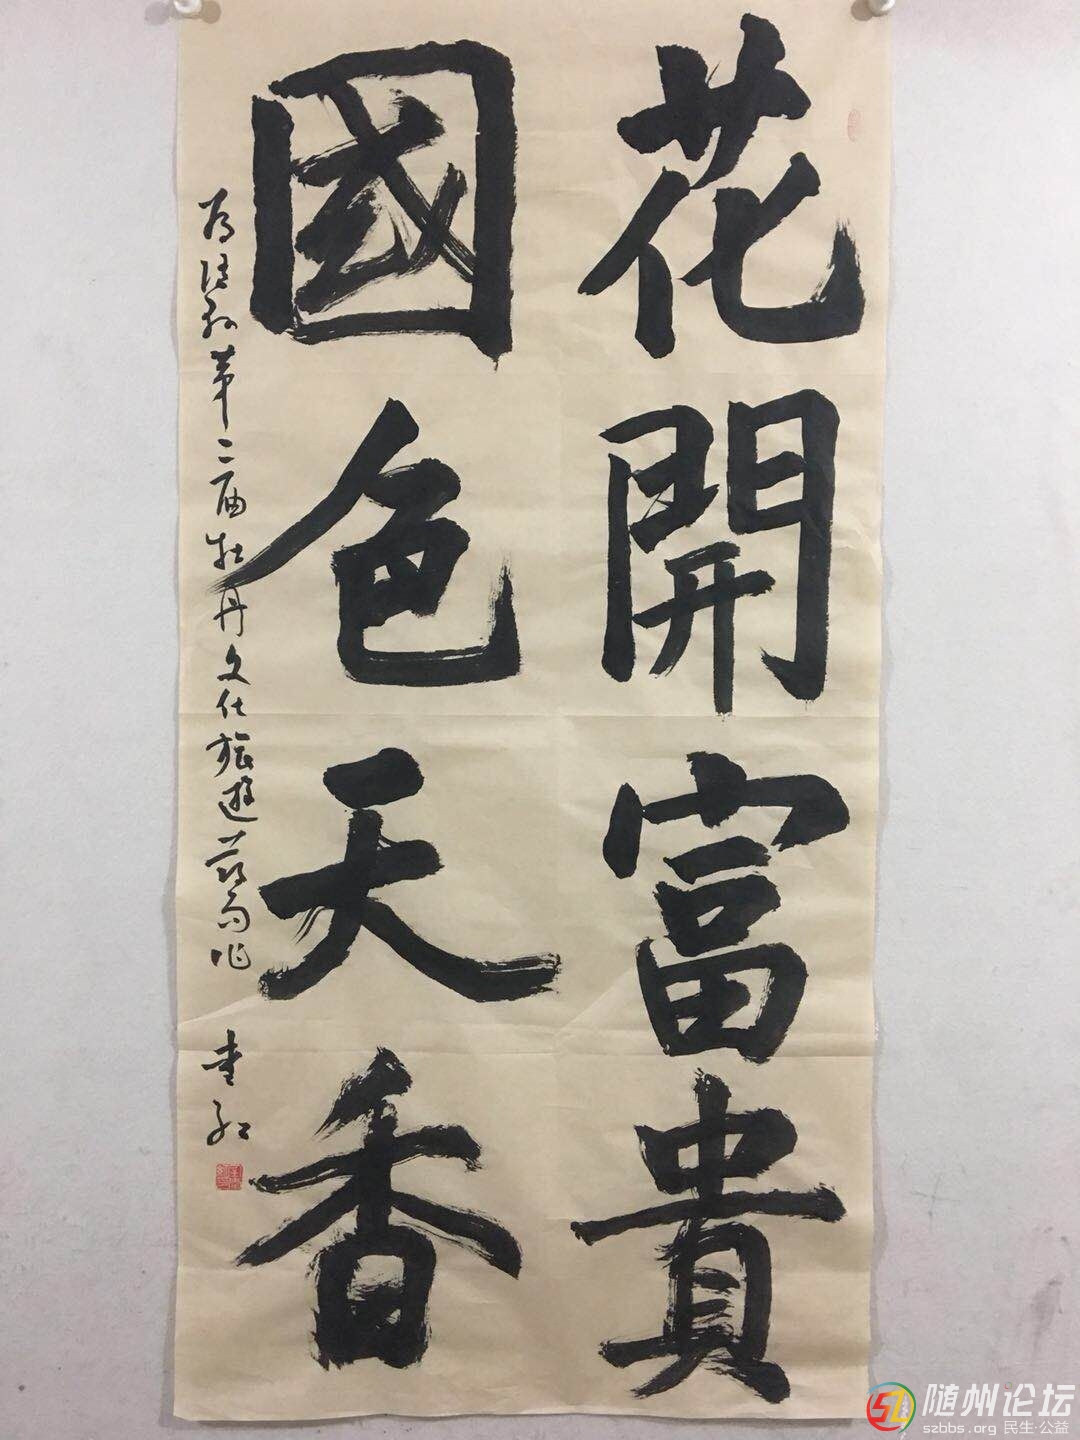 花開富貴
國色天香
第二届牡丹文化旅遊节而作
随州论坛
szbbs.org 民生·公益